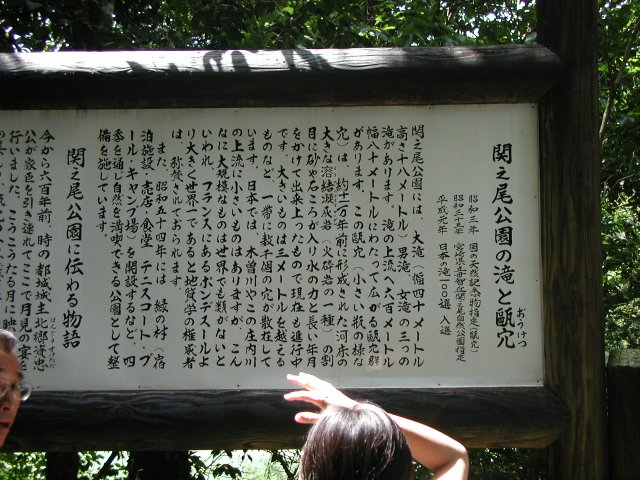 関之尾公園の滝と甌穴
おうけつ
昭和三年 国の天然記念物指定(甌穴)
昭和三十三年 宮崎県母智丘関之尾自然公園指定
平成元年 日本の滝一〇〇選 入選
関之尾公園には、大滝(幅四十メートル
高さ十八メートル)男滝、女滝の三つの
滝があります。滝の上流へ六百メートル
幅八十メートルにわたって広がる甌穴群
があります。この甌穴(小さい瓶の様な
穴)は、約十一万年前に形成された河床の
大きな溶結凝灰岩(火砕岩の一種)の割
目に砂や石ころが入り水の力と長い年月
をかけて出来上ったもので現在も進行中
です。大きいものは三メートルを越える
ものなど、一帯に数千個の穴が散在して
います。日本では、木曽川やこの庄内川
の上流に小さいものはありますが、こん
なに大規模なものは世界でも類がないと
いわれ、フランスにあるポンデスールよ
り大きく世界一であると地質学の権威者
は、称賛されております。
また、昭和五十四年には、緑の村(宿
泊施設・売店・食堂、テニスコート・プ
ール・キャンプ場)を開設するなど、四
季を通じ自然を満喫できる公園として整
備を施しています。
関之尾公園に伝わる物語
今から六百年前、時の都城城主北郷資忠
ほんごうすけただ
公が家臣を引き連れてここで月見の宴を
行いました。こうこうたる月に映